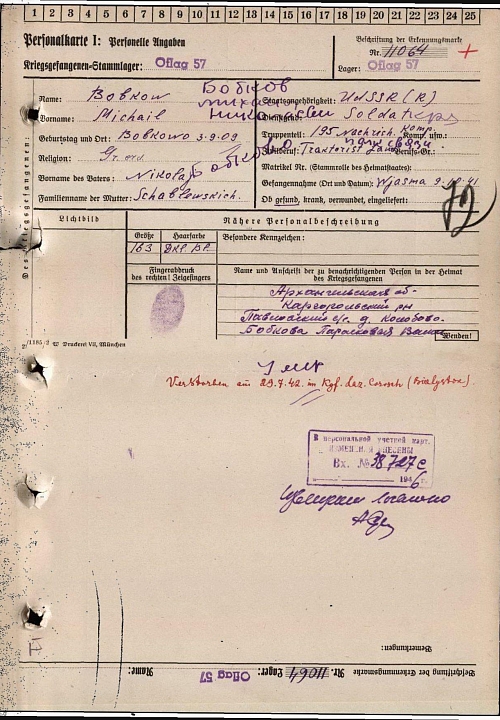 1 2 3 4 5 6 7 8 9 10 11 12 13 14 15 16 17 18 19 20 21 22 23 24 25
Personalkarte I: Personelle Angaben
Kriegsgefangenen-Stammlager: Oflag 57
Beschriftung der Erkennungsmarke
Nr. 11064
Lager: Oflag 57
Des Kriegsgefangenen
Name: Bobkow
Vorname: Michail
Geburtstag und Ort: Bobkowo 3.9.09
Religion: Gr. ord.
Vorname des Vaters: Nikolaj
Familienname der Mutter: Schablewskich.
Бобков
Михаил
Бобково
Staatsangehörigkeit: UdSSR (R)
Dienstgrad: Soldat
Truppenteil: 195 Nachrich. Komp. usw.
полк связи
Zivilberuf: Traktorist Berufs-Gr.:
Matrikel Nr. (Stammrolle des Heimatstaates):
Gefangennahme (Ort und Datum): Wjasma 9.10.41
Ob gesund, krank, verwundet, eingeliefert:
Lichtbild
Nähere Personalbeschreibung
Größe Haarfarbe Besondere Kennzeichen:
163 dkl. bl.
Fingerabdruck
des rechten Zeigefingers
Name und Anschrift der zu benachrichtigenden Person in der Heimat
des Kriegsgefangenen
Архангельская об-
Каргопольский рн
с/с. д. Колобово
Бобкова Парасковья
Wenden!
Druckerei VII, München
Verstorben am 29.7.42 im Kgf. Laz. Corosch (Bialystok).
В персональной учетной карт.
ИЗМЕНЕНИЯ ВНЕСЕНЫ
Вх. № 38727с
1946 г.
Bemerkungen:
Beschriftung der Erkennungsmarke Nr. 11064 Lager: Oflag 57 Name: